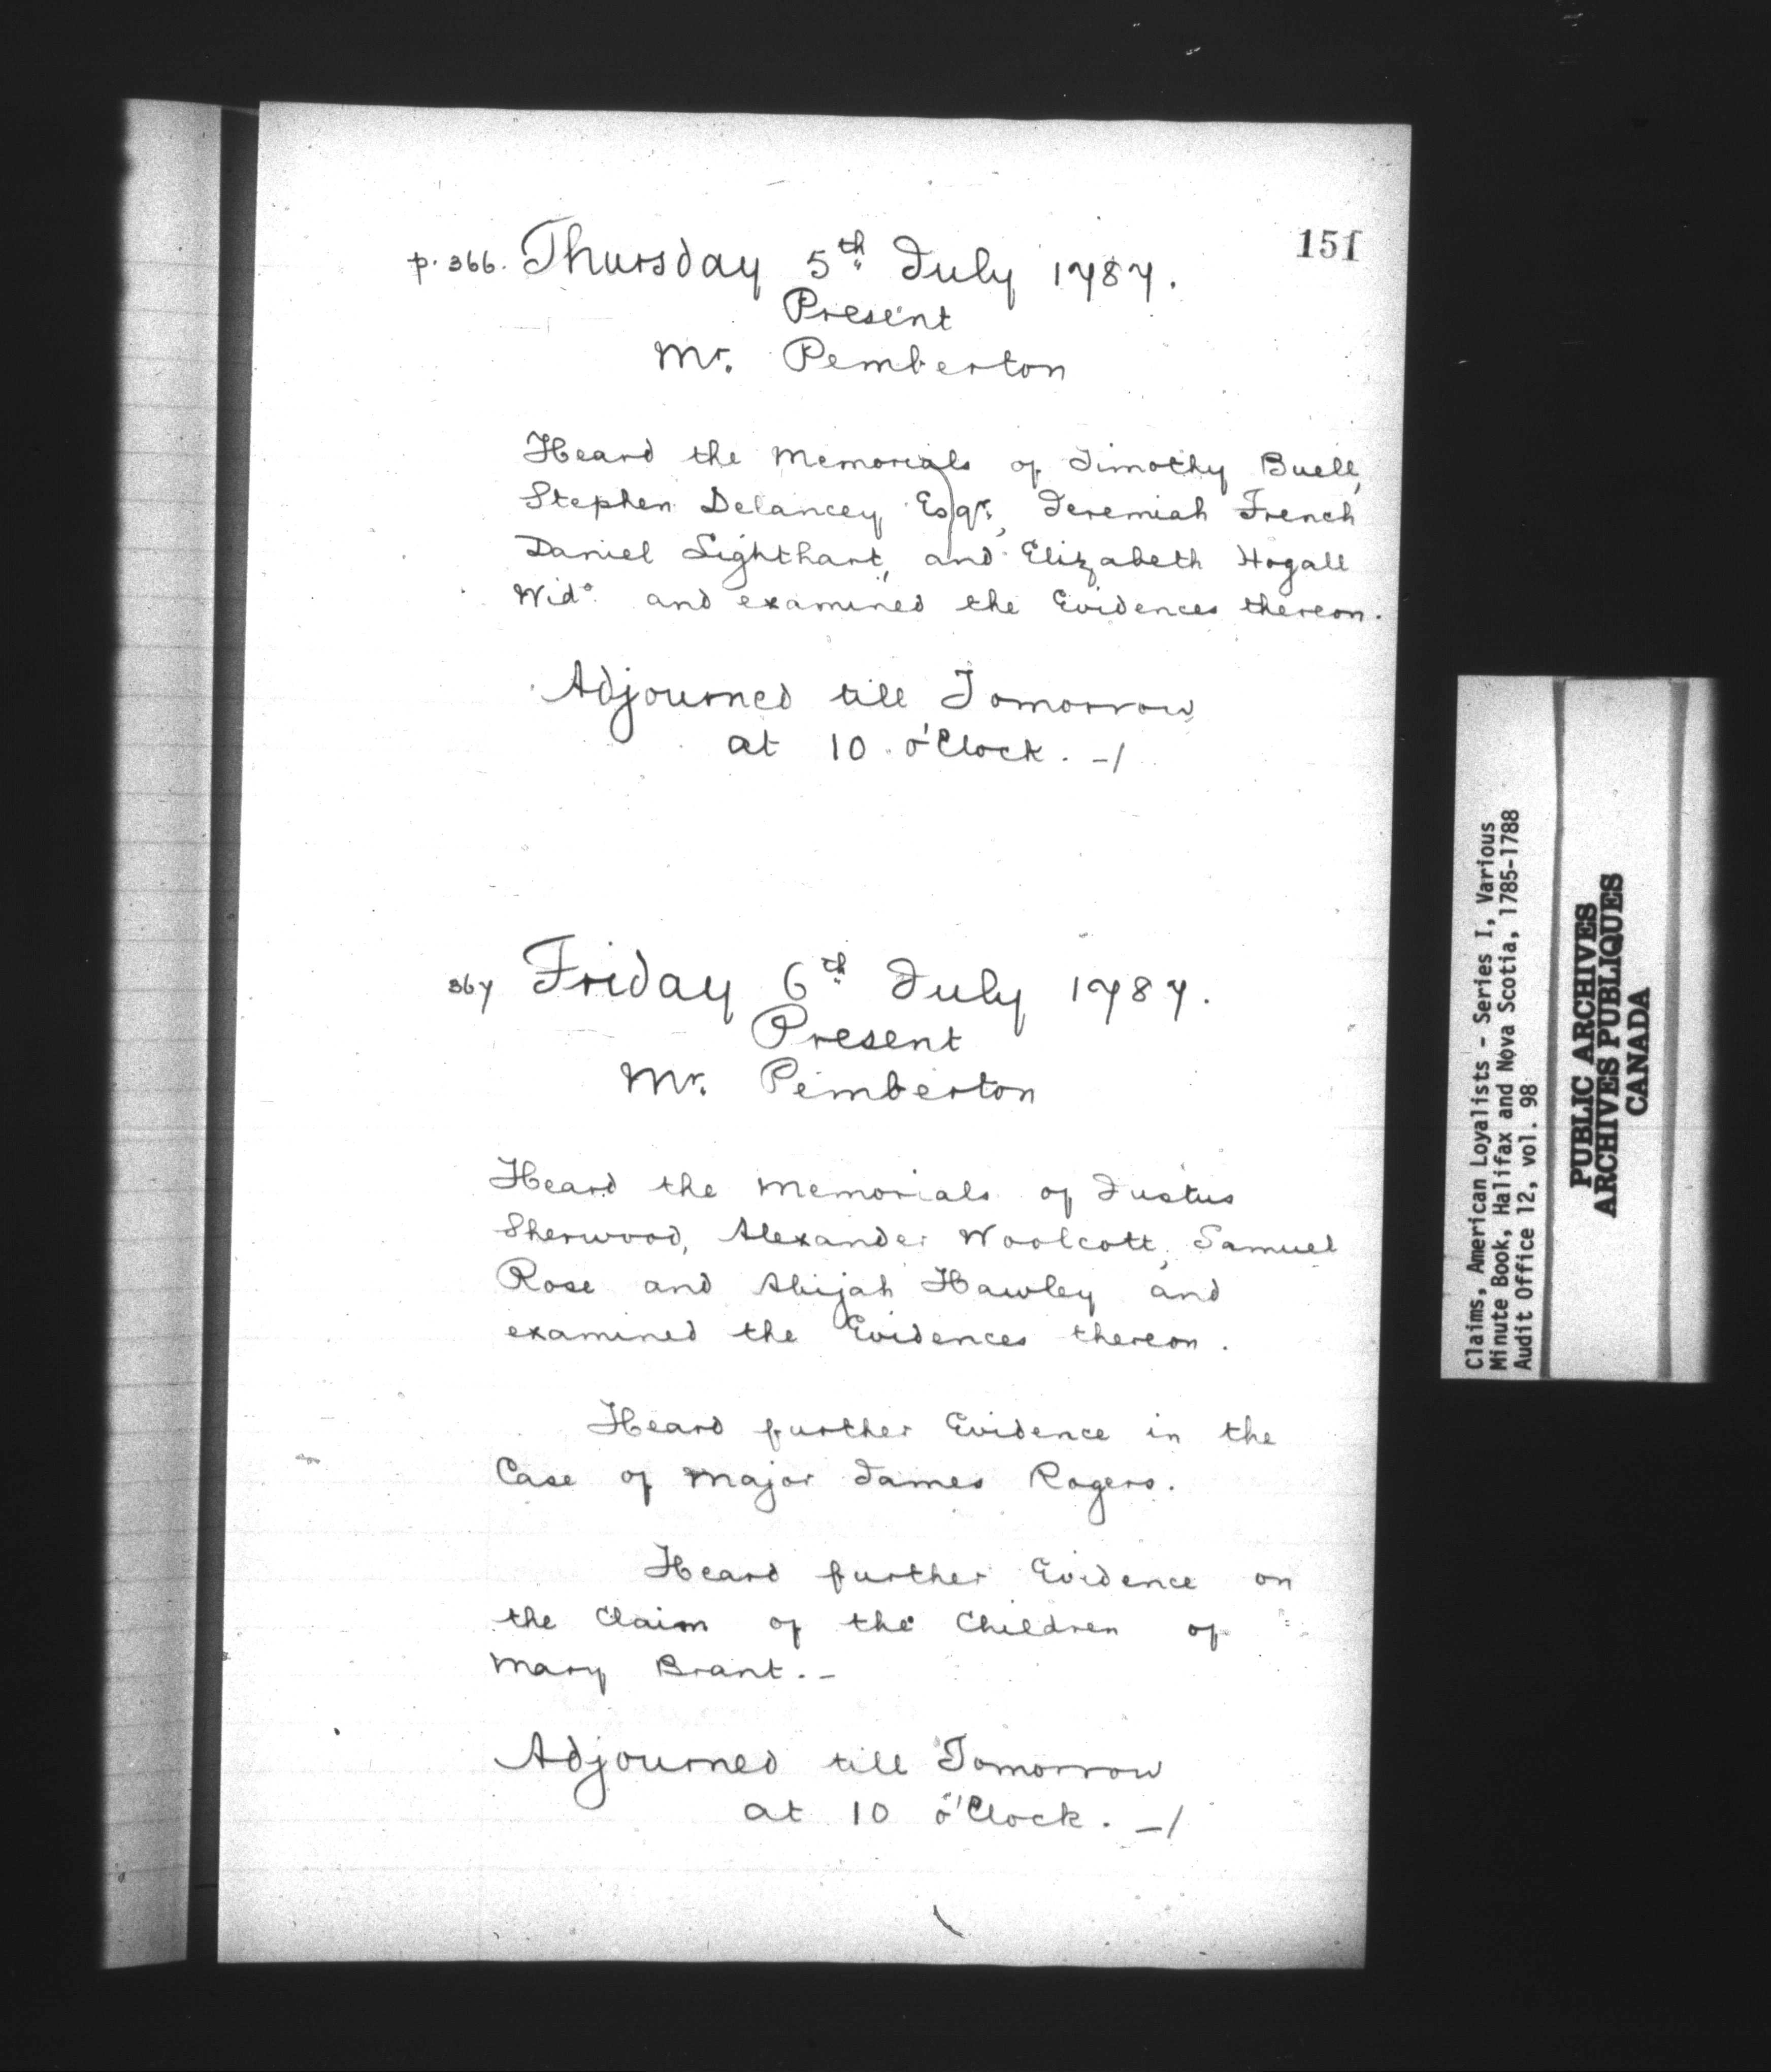 151
p. 366. Thursday 5th July 1787.
Present
Mr. Pemberton
Heard the Memorials of Timothy Buell,
Stephen Delancey Esqr., Jeremiah French
Daniel Lighthart, and Elizabeth Hogall
Wido. and examined the Evidences thereon.
Adjourned till Tomorrow
at 10 o'Clock. -/
367 Friday 6th July 1787.
Present
Mr. Pemberton
Heard the Memorials of Justus
Sherwood, Alexander Woolcott, Samuel
Rose and Abijah Hawley and
examined the Evidences thereon.
Heard further Evidence in the
Case of Major James Rogers.
Heard further Evidence on
the Claim of the Children of
Mary Brant. -
Adjourned till Tomorrow
at 10 o'Clock. -/
Claims, American Loyalists - Series I, Various
Minute Book, Halifax and Nova Scotia, 1785-1788
Audit Office 12, vol. 98
PUBLIC ARCHIVES
ARCHIVES PUBLIQUES
CANADA